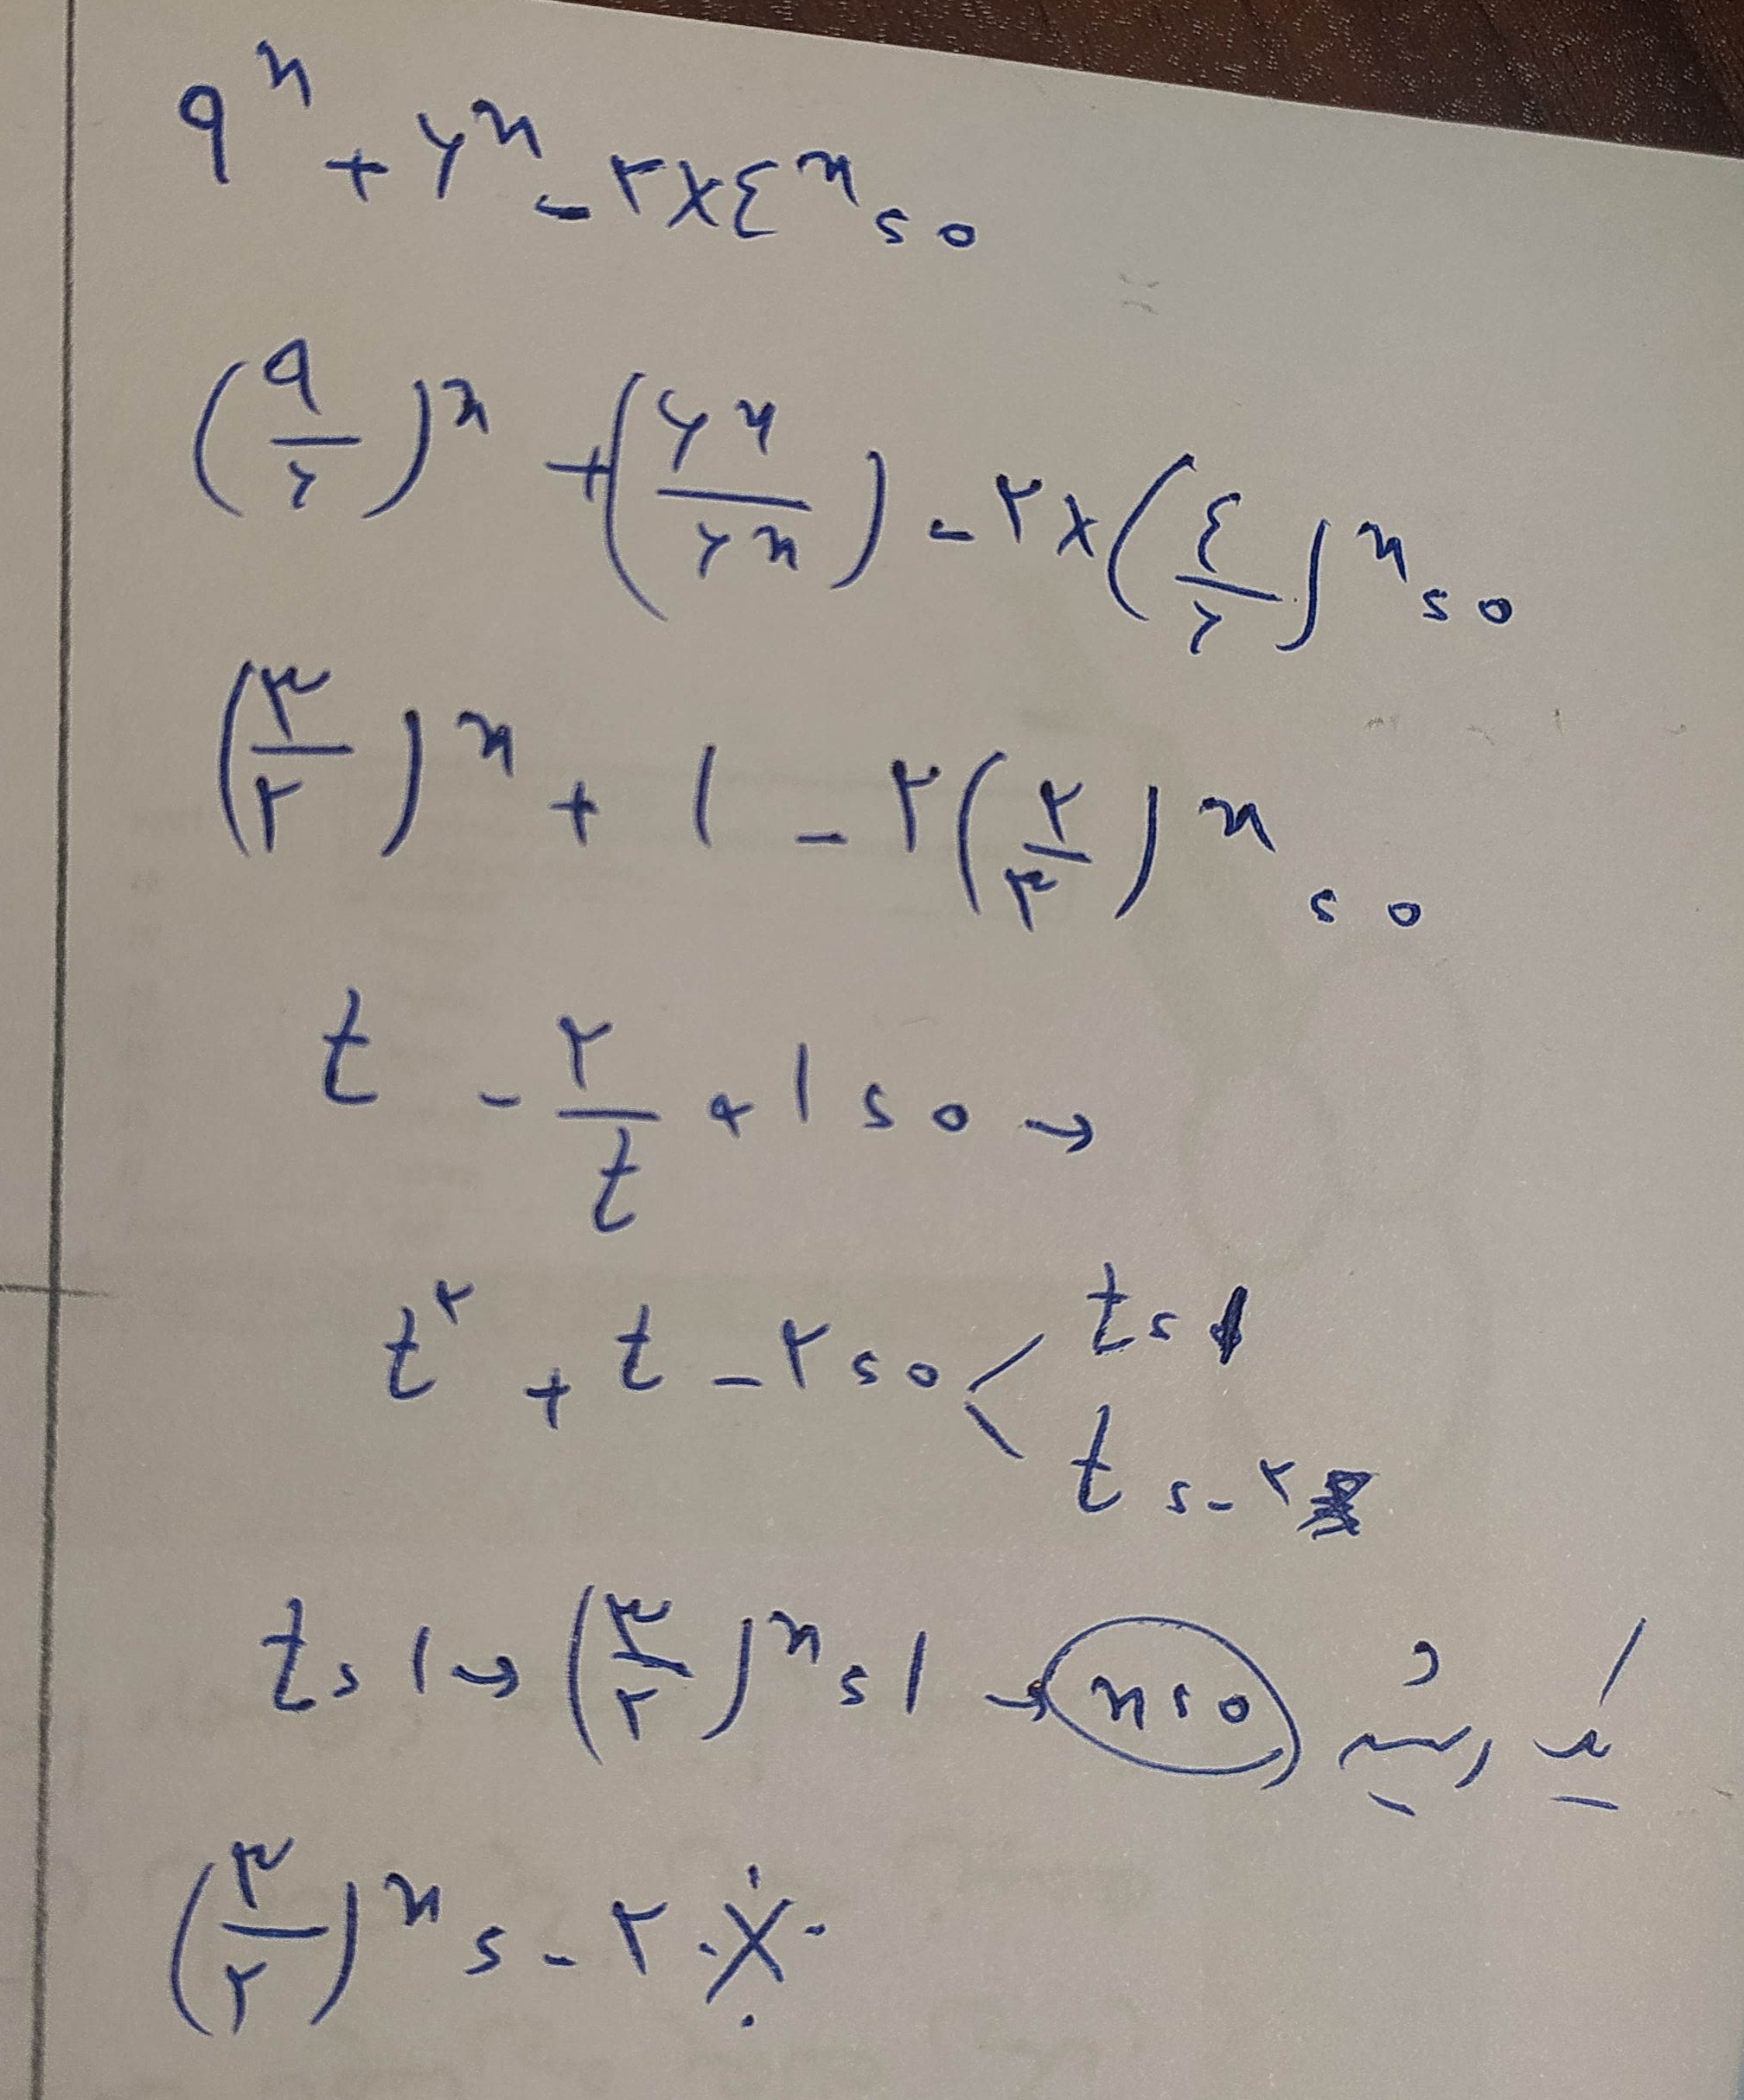 ۹^x + ۶^x - ۲×۴^x = ۰
(۹/۶)^x + (۶^x/۶^x) - ۲×(۴/۶)^x = ۰
(۳/۲)^x + ۱ - ۲(۲/۳)^x = ۰
t - ۲/t + ۱ = ۰ →
t^۲ + t - ۲ = ۰ < t = ۱
t = -۲
t = ۱ → (۳/۲)^x = ۱ → x = ۰
(۳/۲)^x = -۲ ※